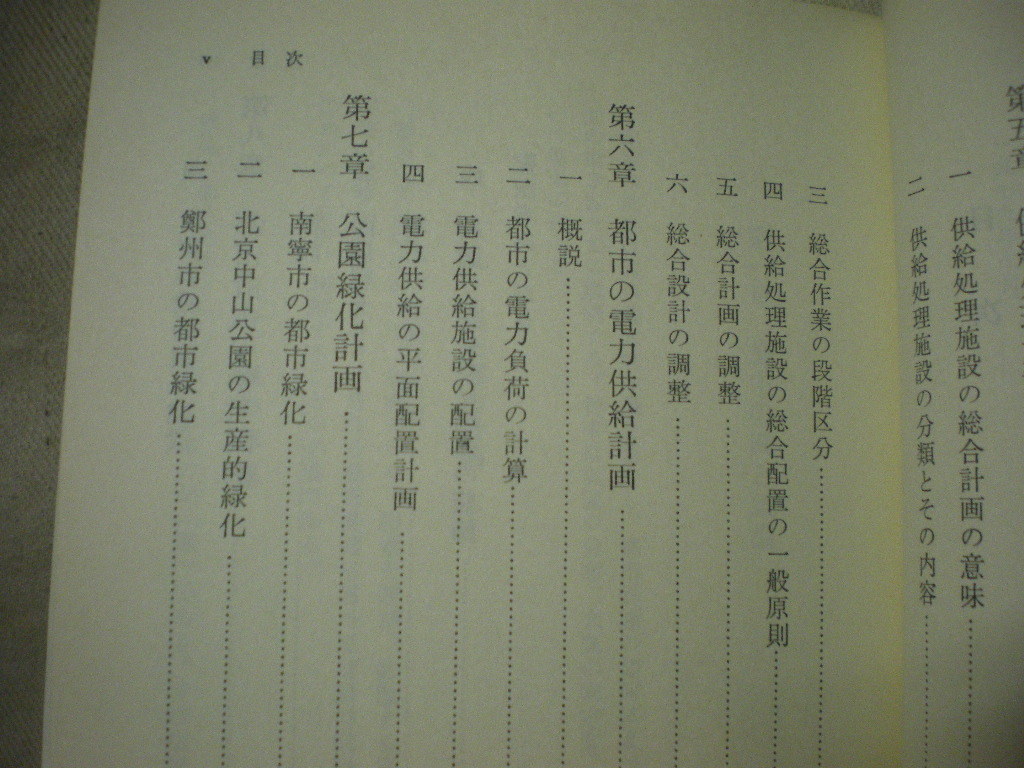 第五章
一 供給処理施設の総合計画の意味
二 供給処理施設の分類とその内容
三 総合作業の段階区分
四 供給処理施設の総合配置の一般原則
五 総合計画の調整
六 総合設計の調整
第六章 都市の電力供給計画
一 概説
二 都市の電力負荷の計算
三 電力供給施設の配置
四 電力供給の平面配置計画
第七章 公園緑化計画
一 南寧市の都市緑化
二 北京中山公園の生産的緑化
三 鄭州市の都市緑化
v 目次